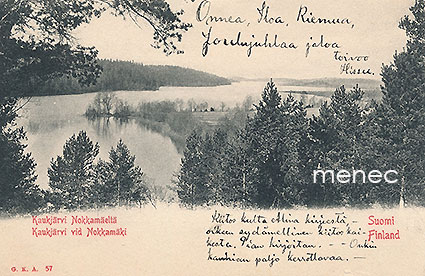 Onnea, Iloa, Riemua,
Joulujuhlaa jaloa
toivoo
menec
Kaukjärvi Nokkamäeltä
Kaukjärvi vid Nokkamäki
Suomi
Finland
Kiitos kulta Alina kirjestä –
oikein sydämellinen kiitos kai-
kesta. Pian kirjoitan. – – Onkin
kauhian paljo kerrottavaa. –
G. K. A. 57